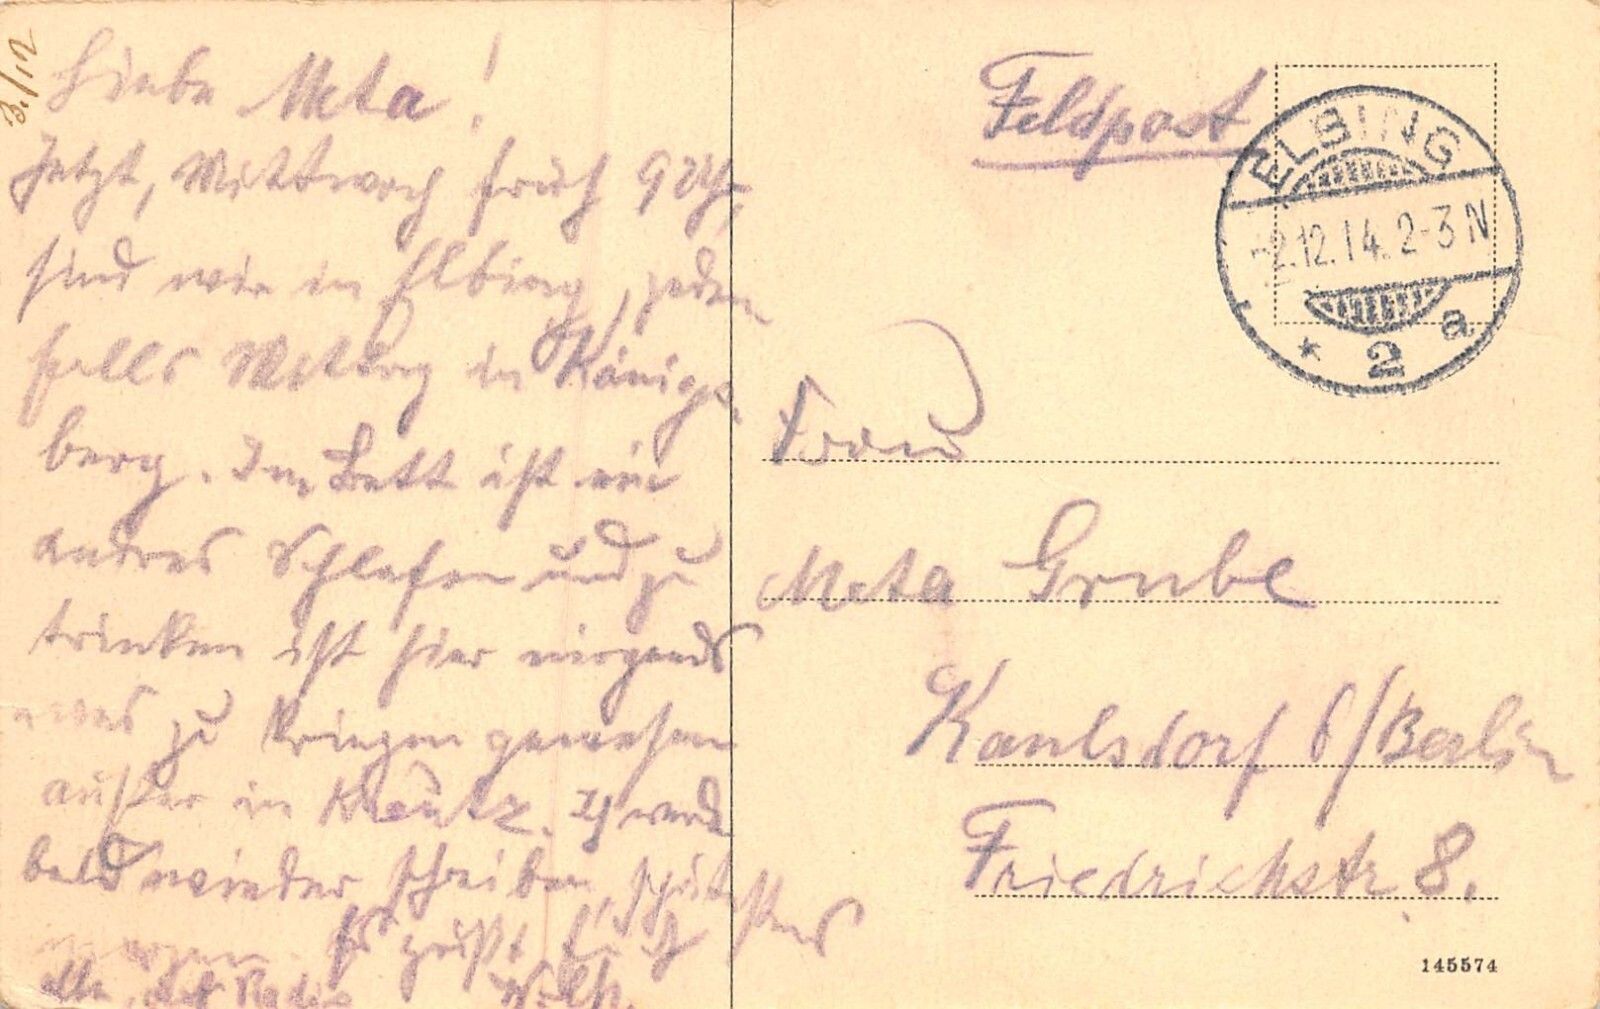 3./12
Liebe Meta!
Jetzt, Mittwoch früh 9 Uhr,
sind wir in Elbing, jeden
falls Mittag in Königs-
berg. Im Bett ist ein
andres Schlafen und zu
trinken ist hier nirgends
was zu kriegen gewesen
außer in Kreutz. Ich werde
bald wieder schreiben, spätstens
morgen. Es grüßt Euch
alle,
Feldpost
ELBING
2.12.14. 2-3 N
* 2 a
Frau
Meta Grube
Kaulsdorf b/Berlin
Friedrichstr. 8.
145574